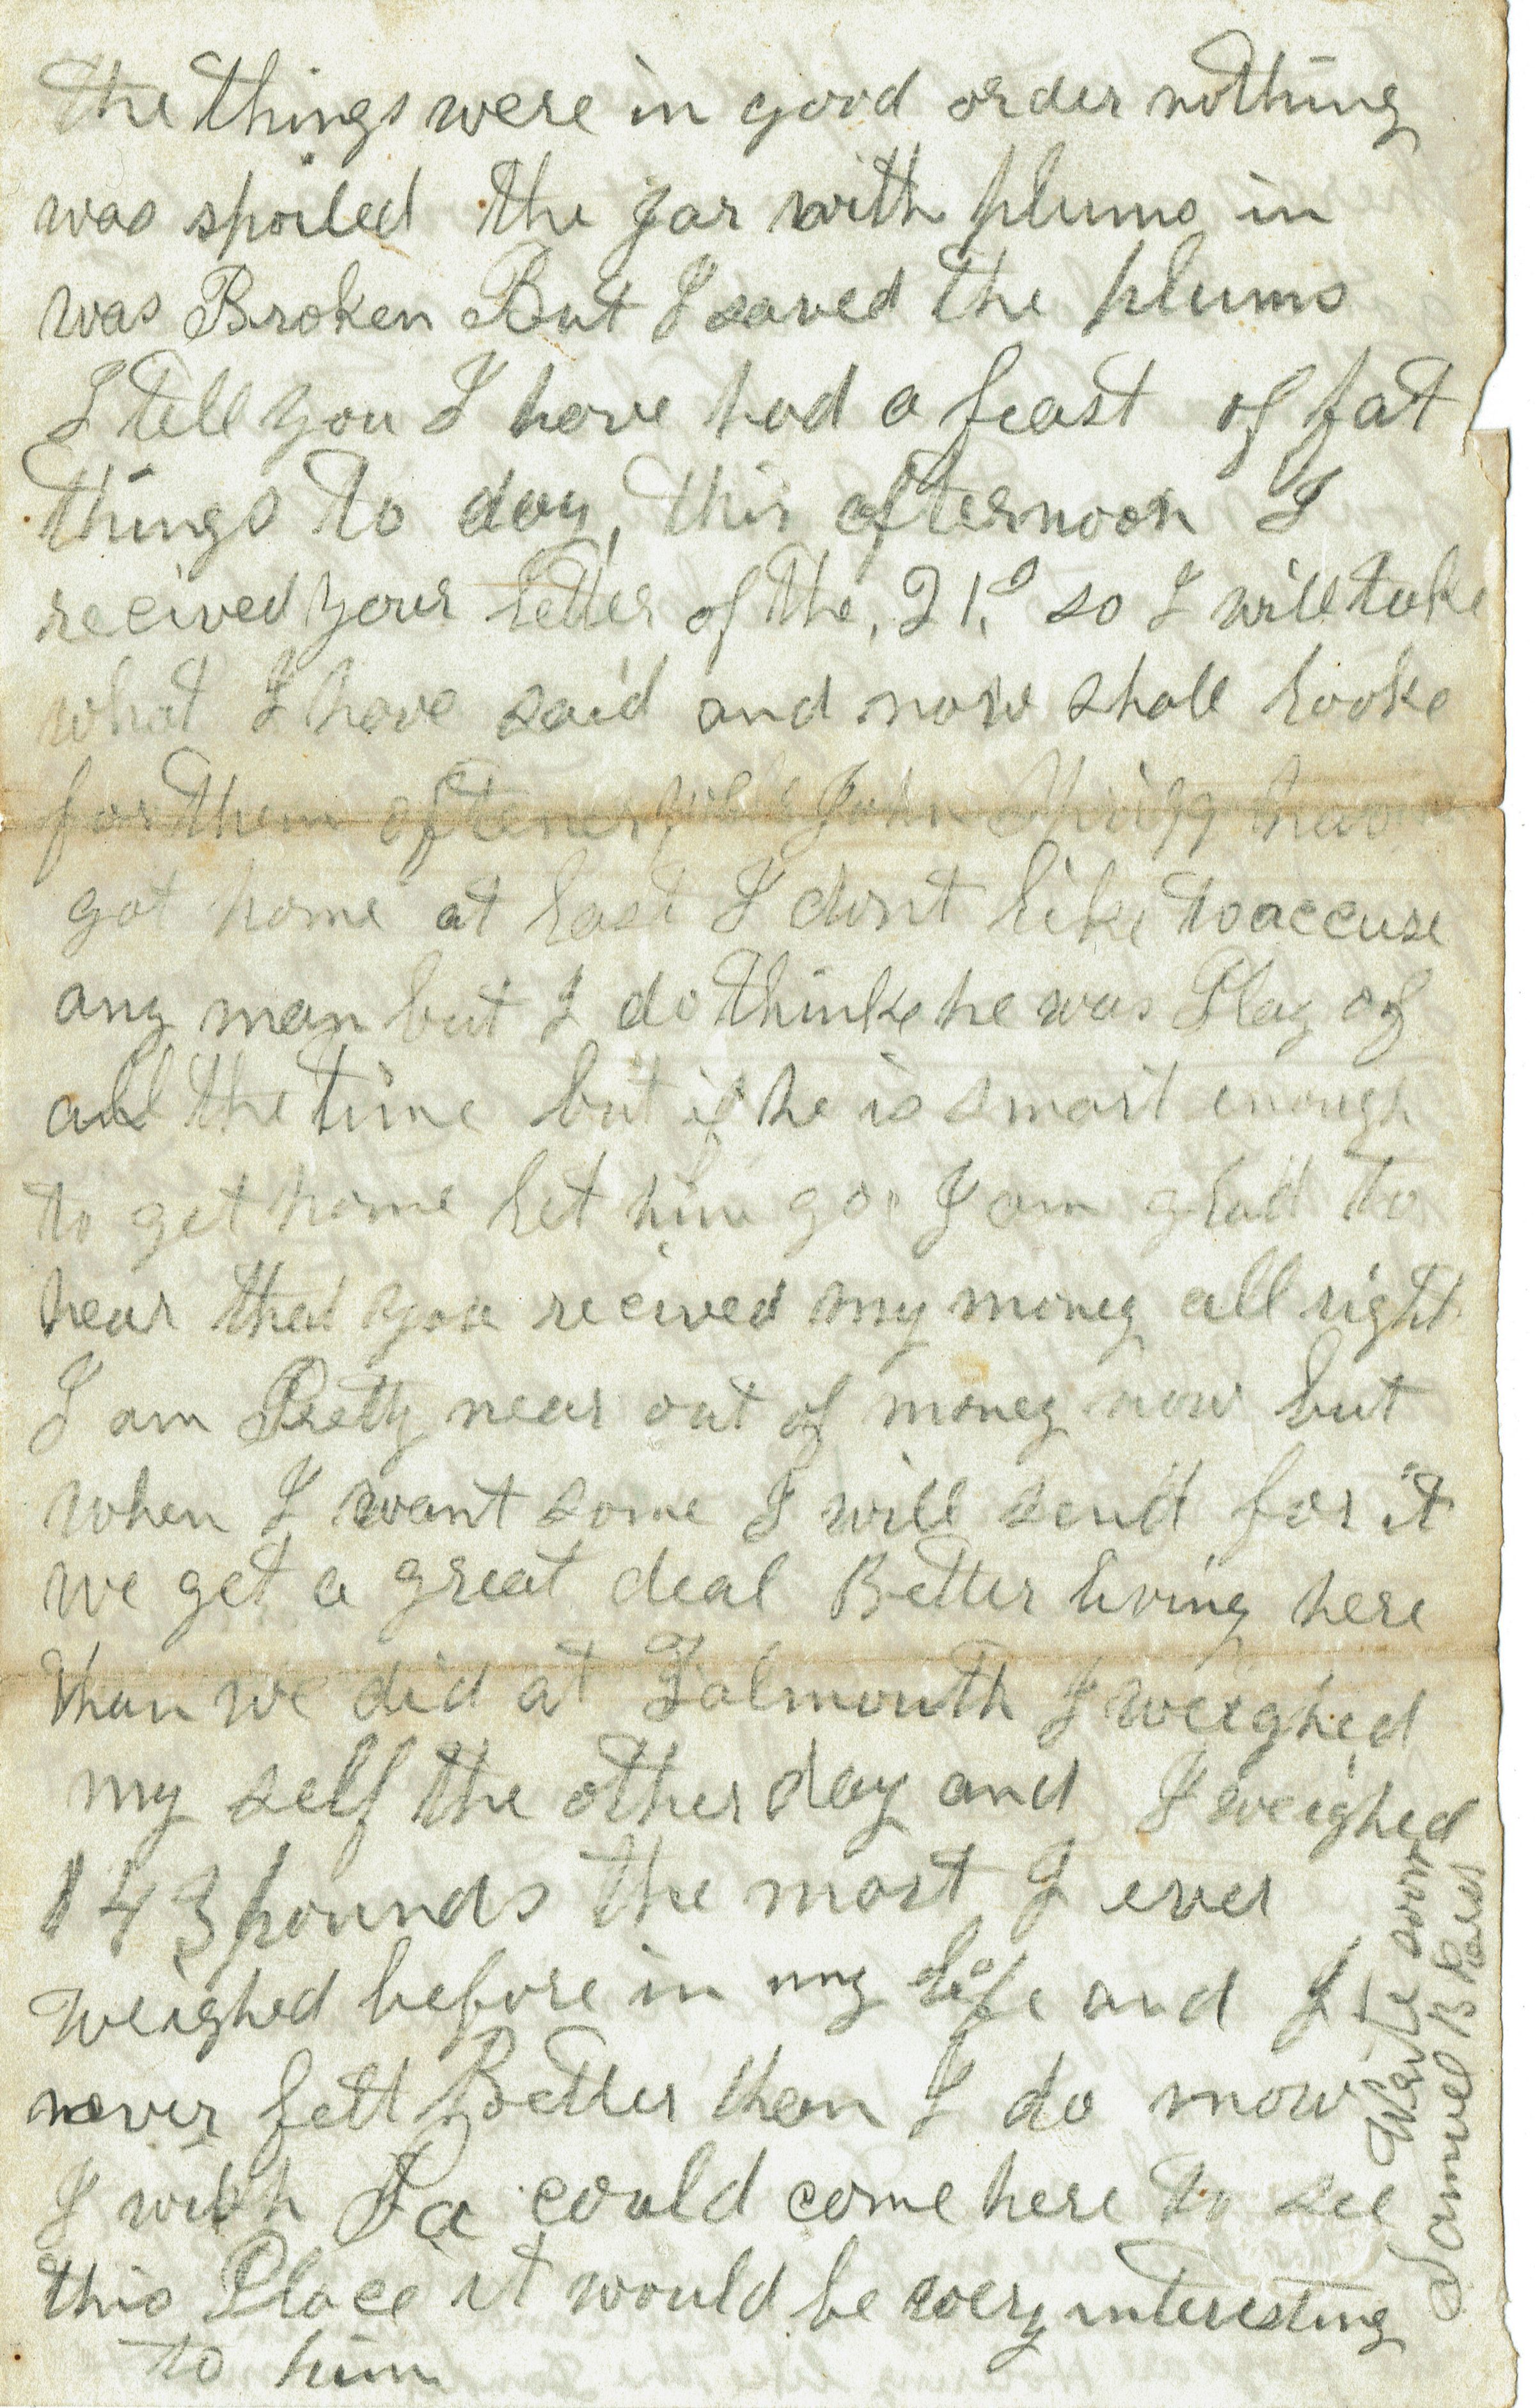 the things were in good order nothing
was spoiled the jar with plums in
was Broken But I saved the plums
I tell you I have had a feast of fat
things to day, this afternoon I
recived your letter of the, 21, so I will take
what I have said and now shall looke
for them oftener, John
got home at last I dont like to accuse
any man but I do thinke he was Play of
all the time but if he is smart enough
to get home let him go. I am glad to
hear that you recived my money all right
I am Pretty near out of money now but
when I want some I will send for it
we get a great deal Better living here
than we did at Falmouth I weighed
my self the other day and I weighed
143 pounds the most I ever
weighed before in my life and I
never felt Better then I do now
I wish Pa could come here to see
this Place it would be very interesting
to him
Write soon
Samuel B